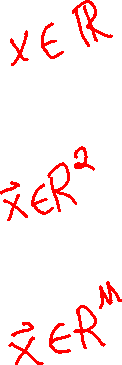 x ∈ ℝ
x⃗ ∈ R²
x⃗ ∈ Rᴹ